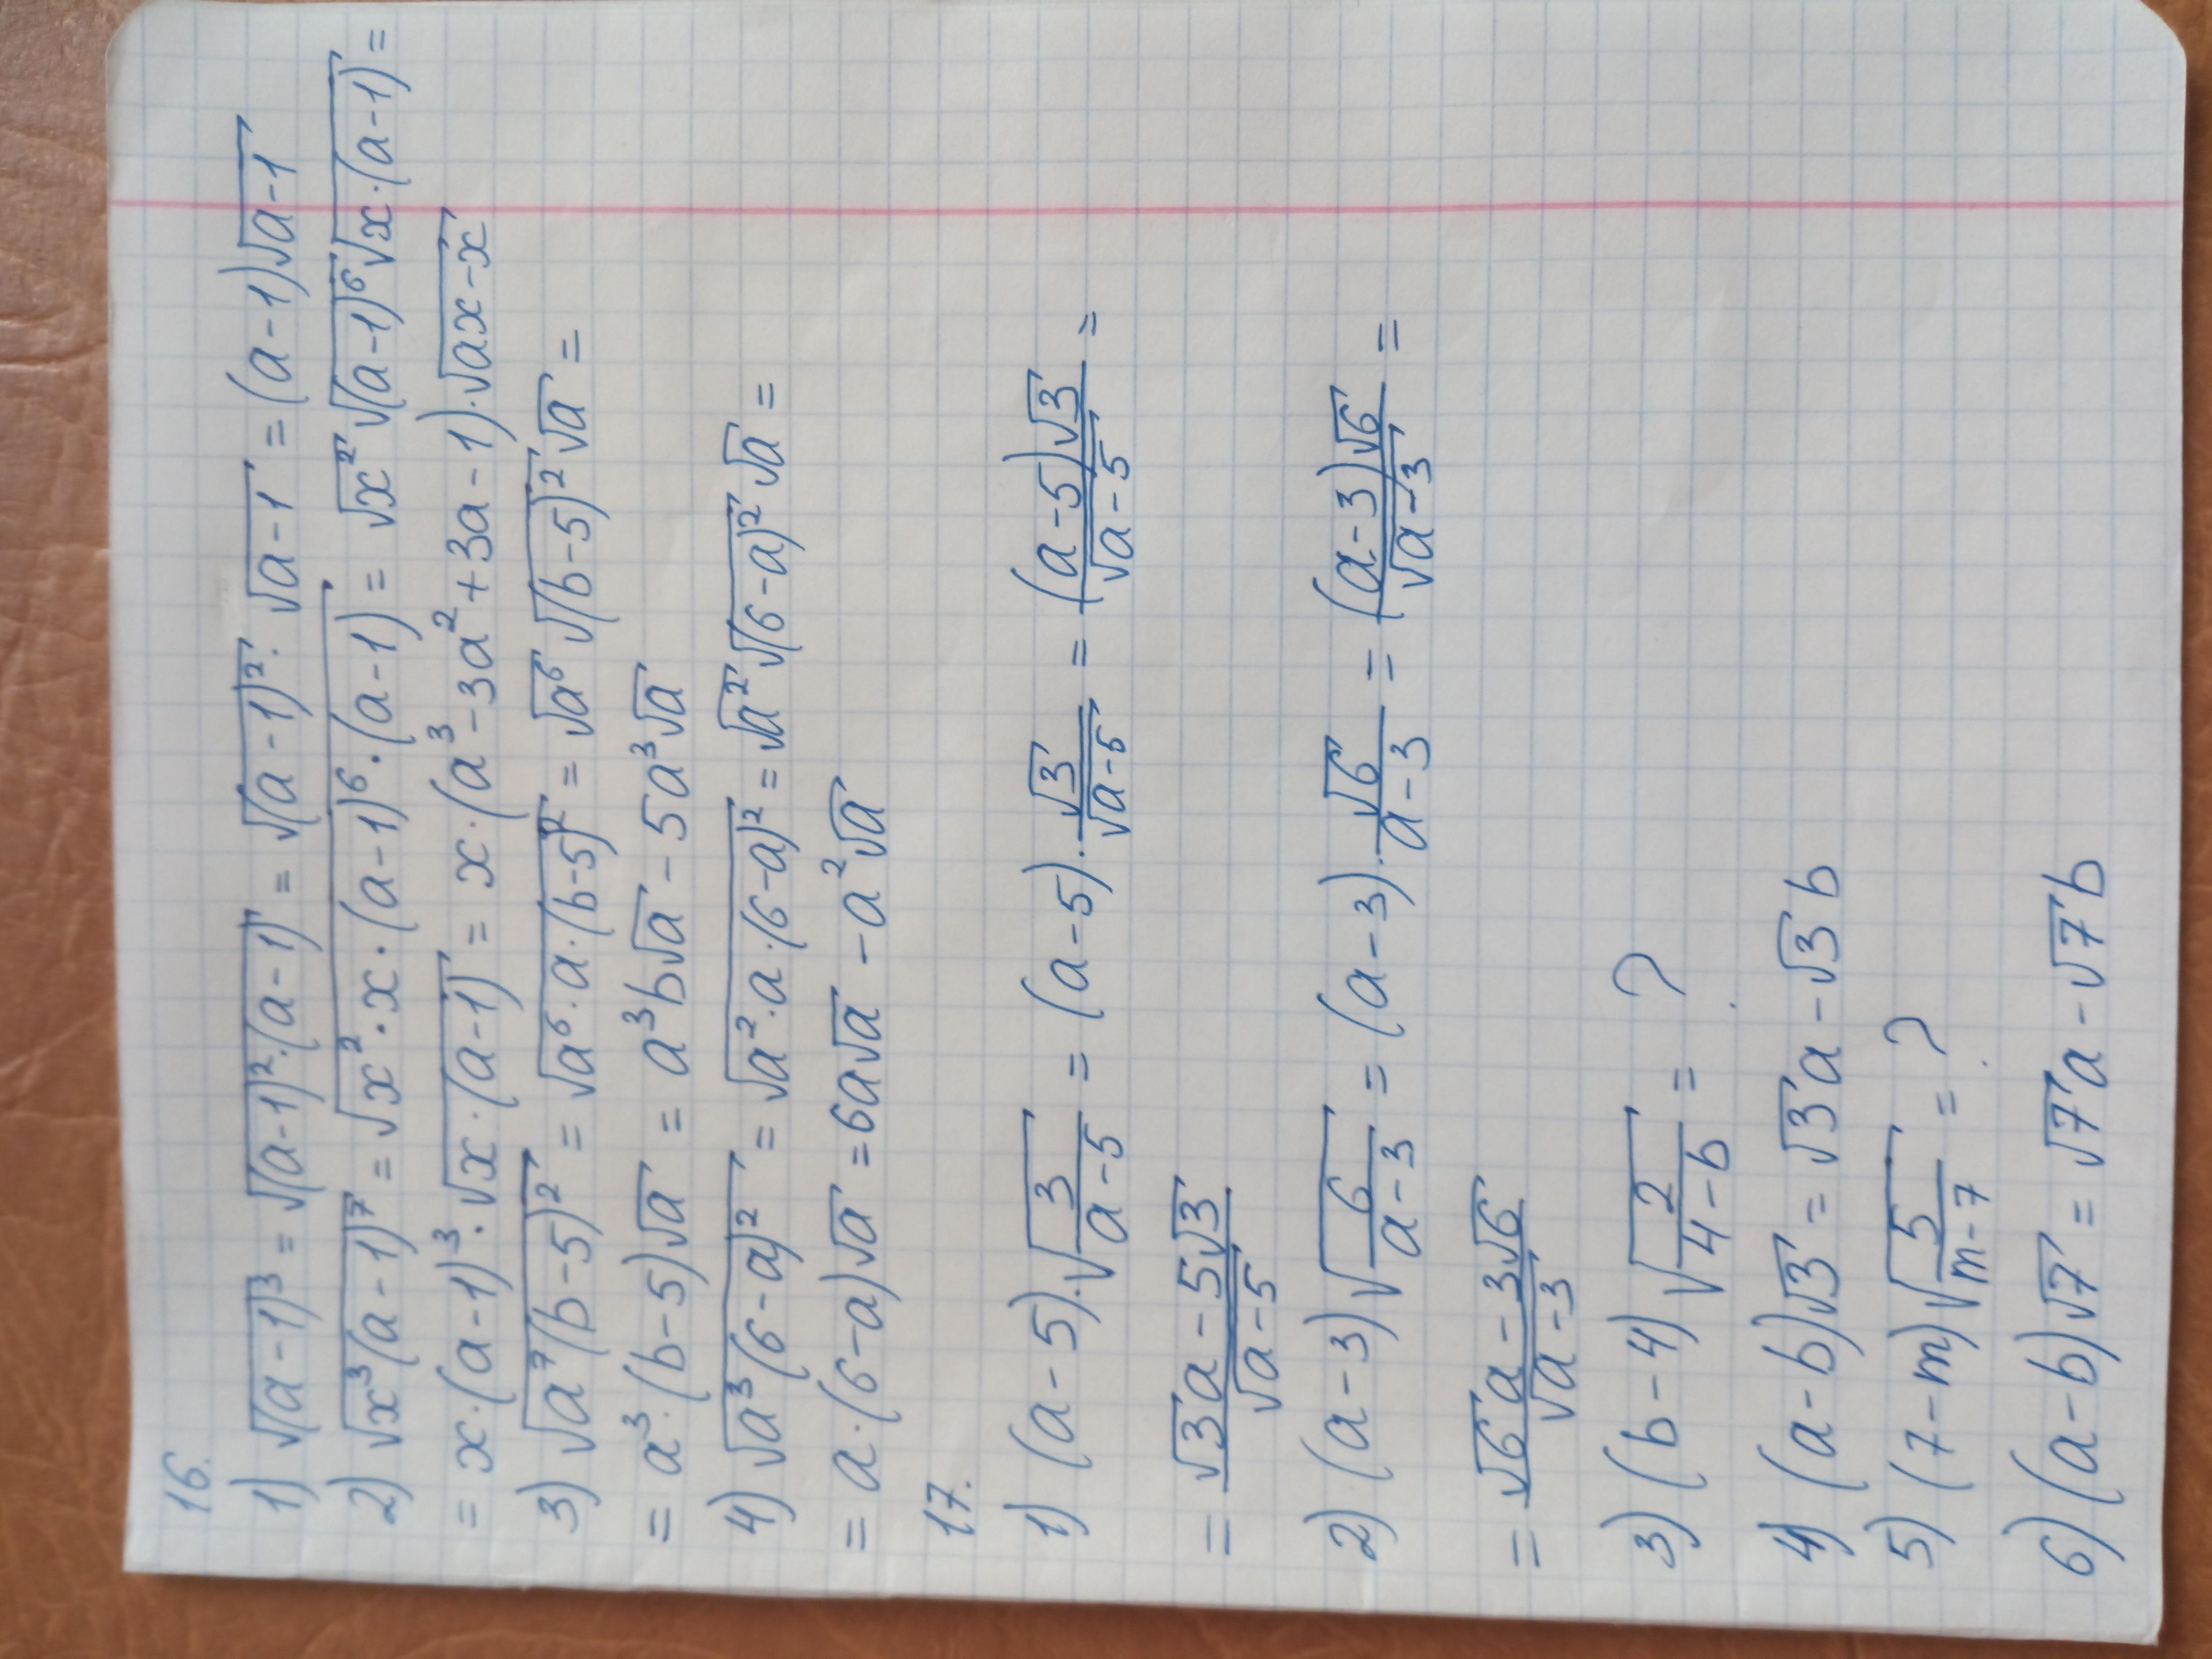 16.
1) √(a-1)³ = √(a-1)²·(a-1) = √(a-1)²·√a-1 = (a-1)√a-1
2) √x³(a-1)⁷ = √x²·x·(a-1)⁶·(a-1) = √x² √(a-1)⁶ √x·(a-1) =
= x·(a-1)³·√x·(a-1) = x·(a³-3a²+3a-1)·√ax-x
3) √a⁷(b-5)² = √a⁶·a·(b-5)² = √a⁶ √(b-5)² √a =
= a³·(b-5)√a = a³b√a - 5a³√a
4) √a³(6-a)² = √a²·a·(6-a)² = √a² √(6-a)² √a =
= a·(6-a)√a = 6a√a - a²√a
17.
1) (a-5)·√(3/(a-5)) = (a-5)·√3/√a-5 = (a-5)√3/√a-5 =
= √3a-5√3/√a-5
2) (a-3)√(6/(a-3)) = (a-3)·√6/a-3 = (a-3)√6/√a-3 =
= √6a-3√6/√a-3
3) (b-4)√(2/(4-b)) = ?
4) (a-b)√3 = √3a-√3b
5) (7-m)√(5/(m-7)) = ?
6) (a-b)√7 = √7a-√7b